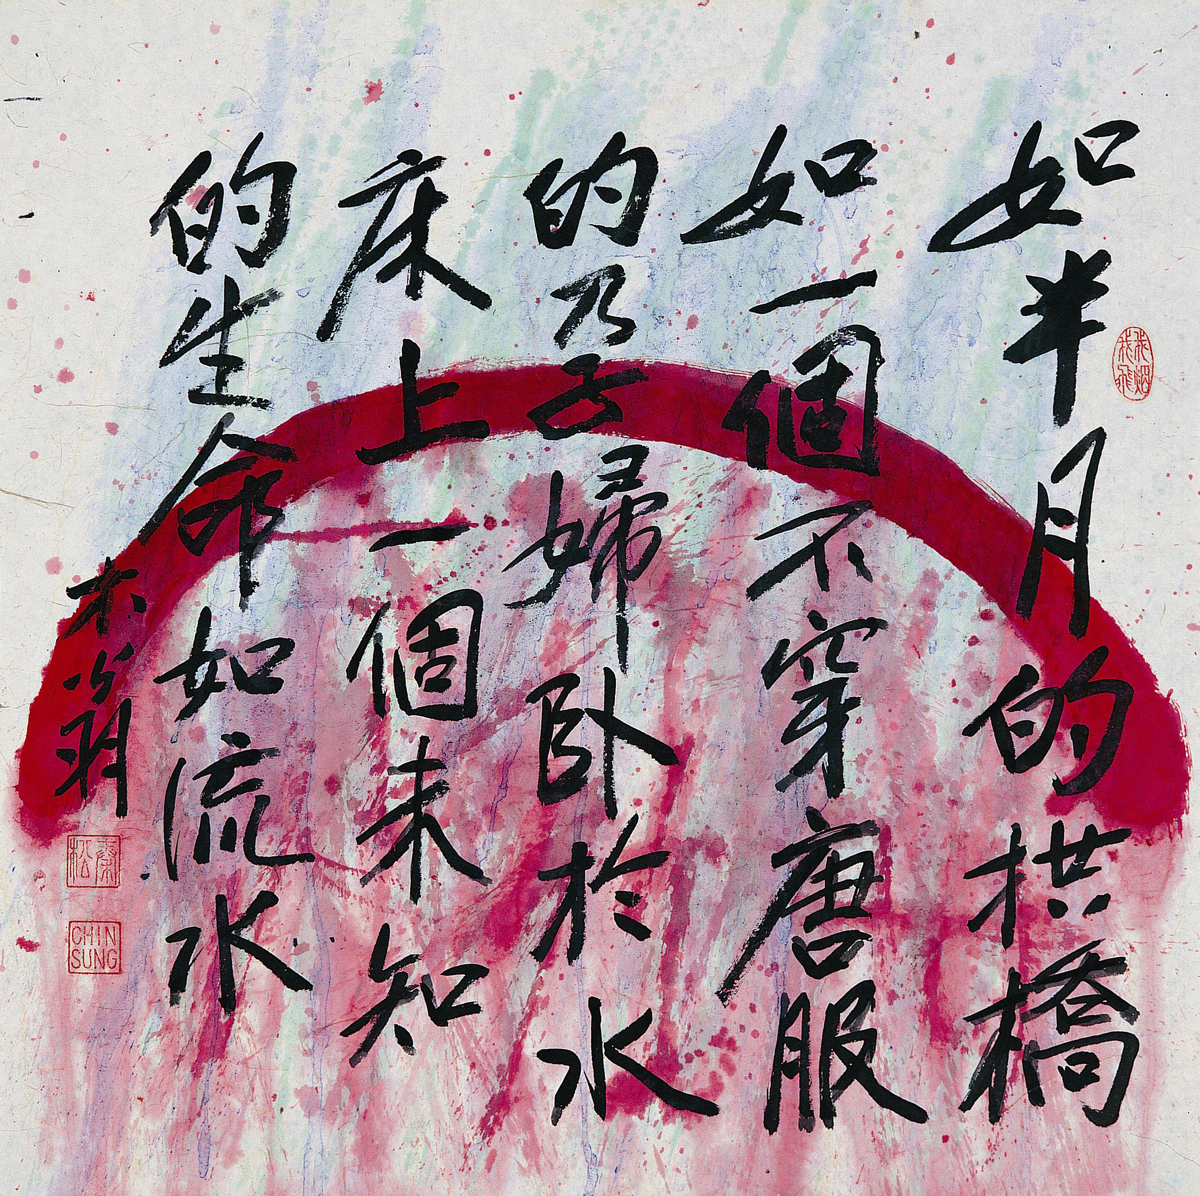 如半月的拱橋
如一個不穿唐服
的孕婦臥於水
床上一個未知
的生命如流水
木翁
秦松
CHIN
SUNG